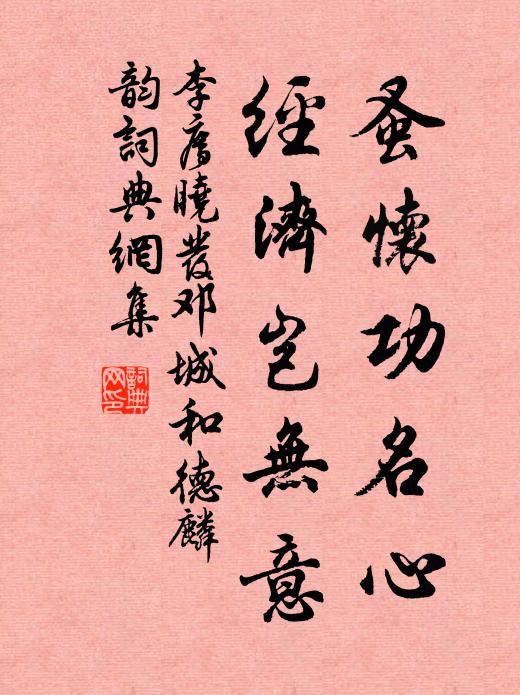 蚤懷功名心
經濟豈無意
李廌曉發邓城和德麟
韵詞典網集
詞典網印